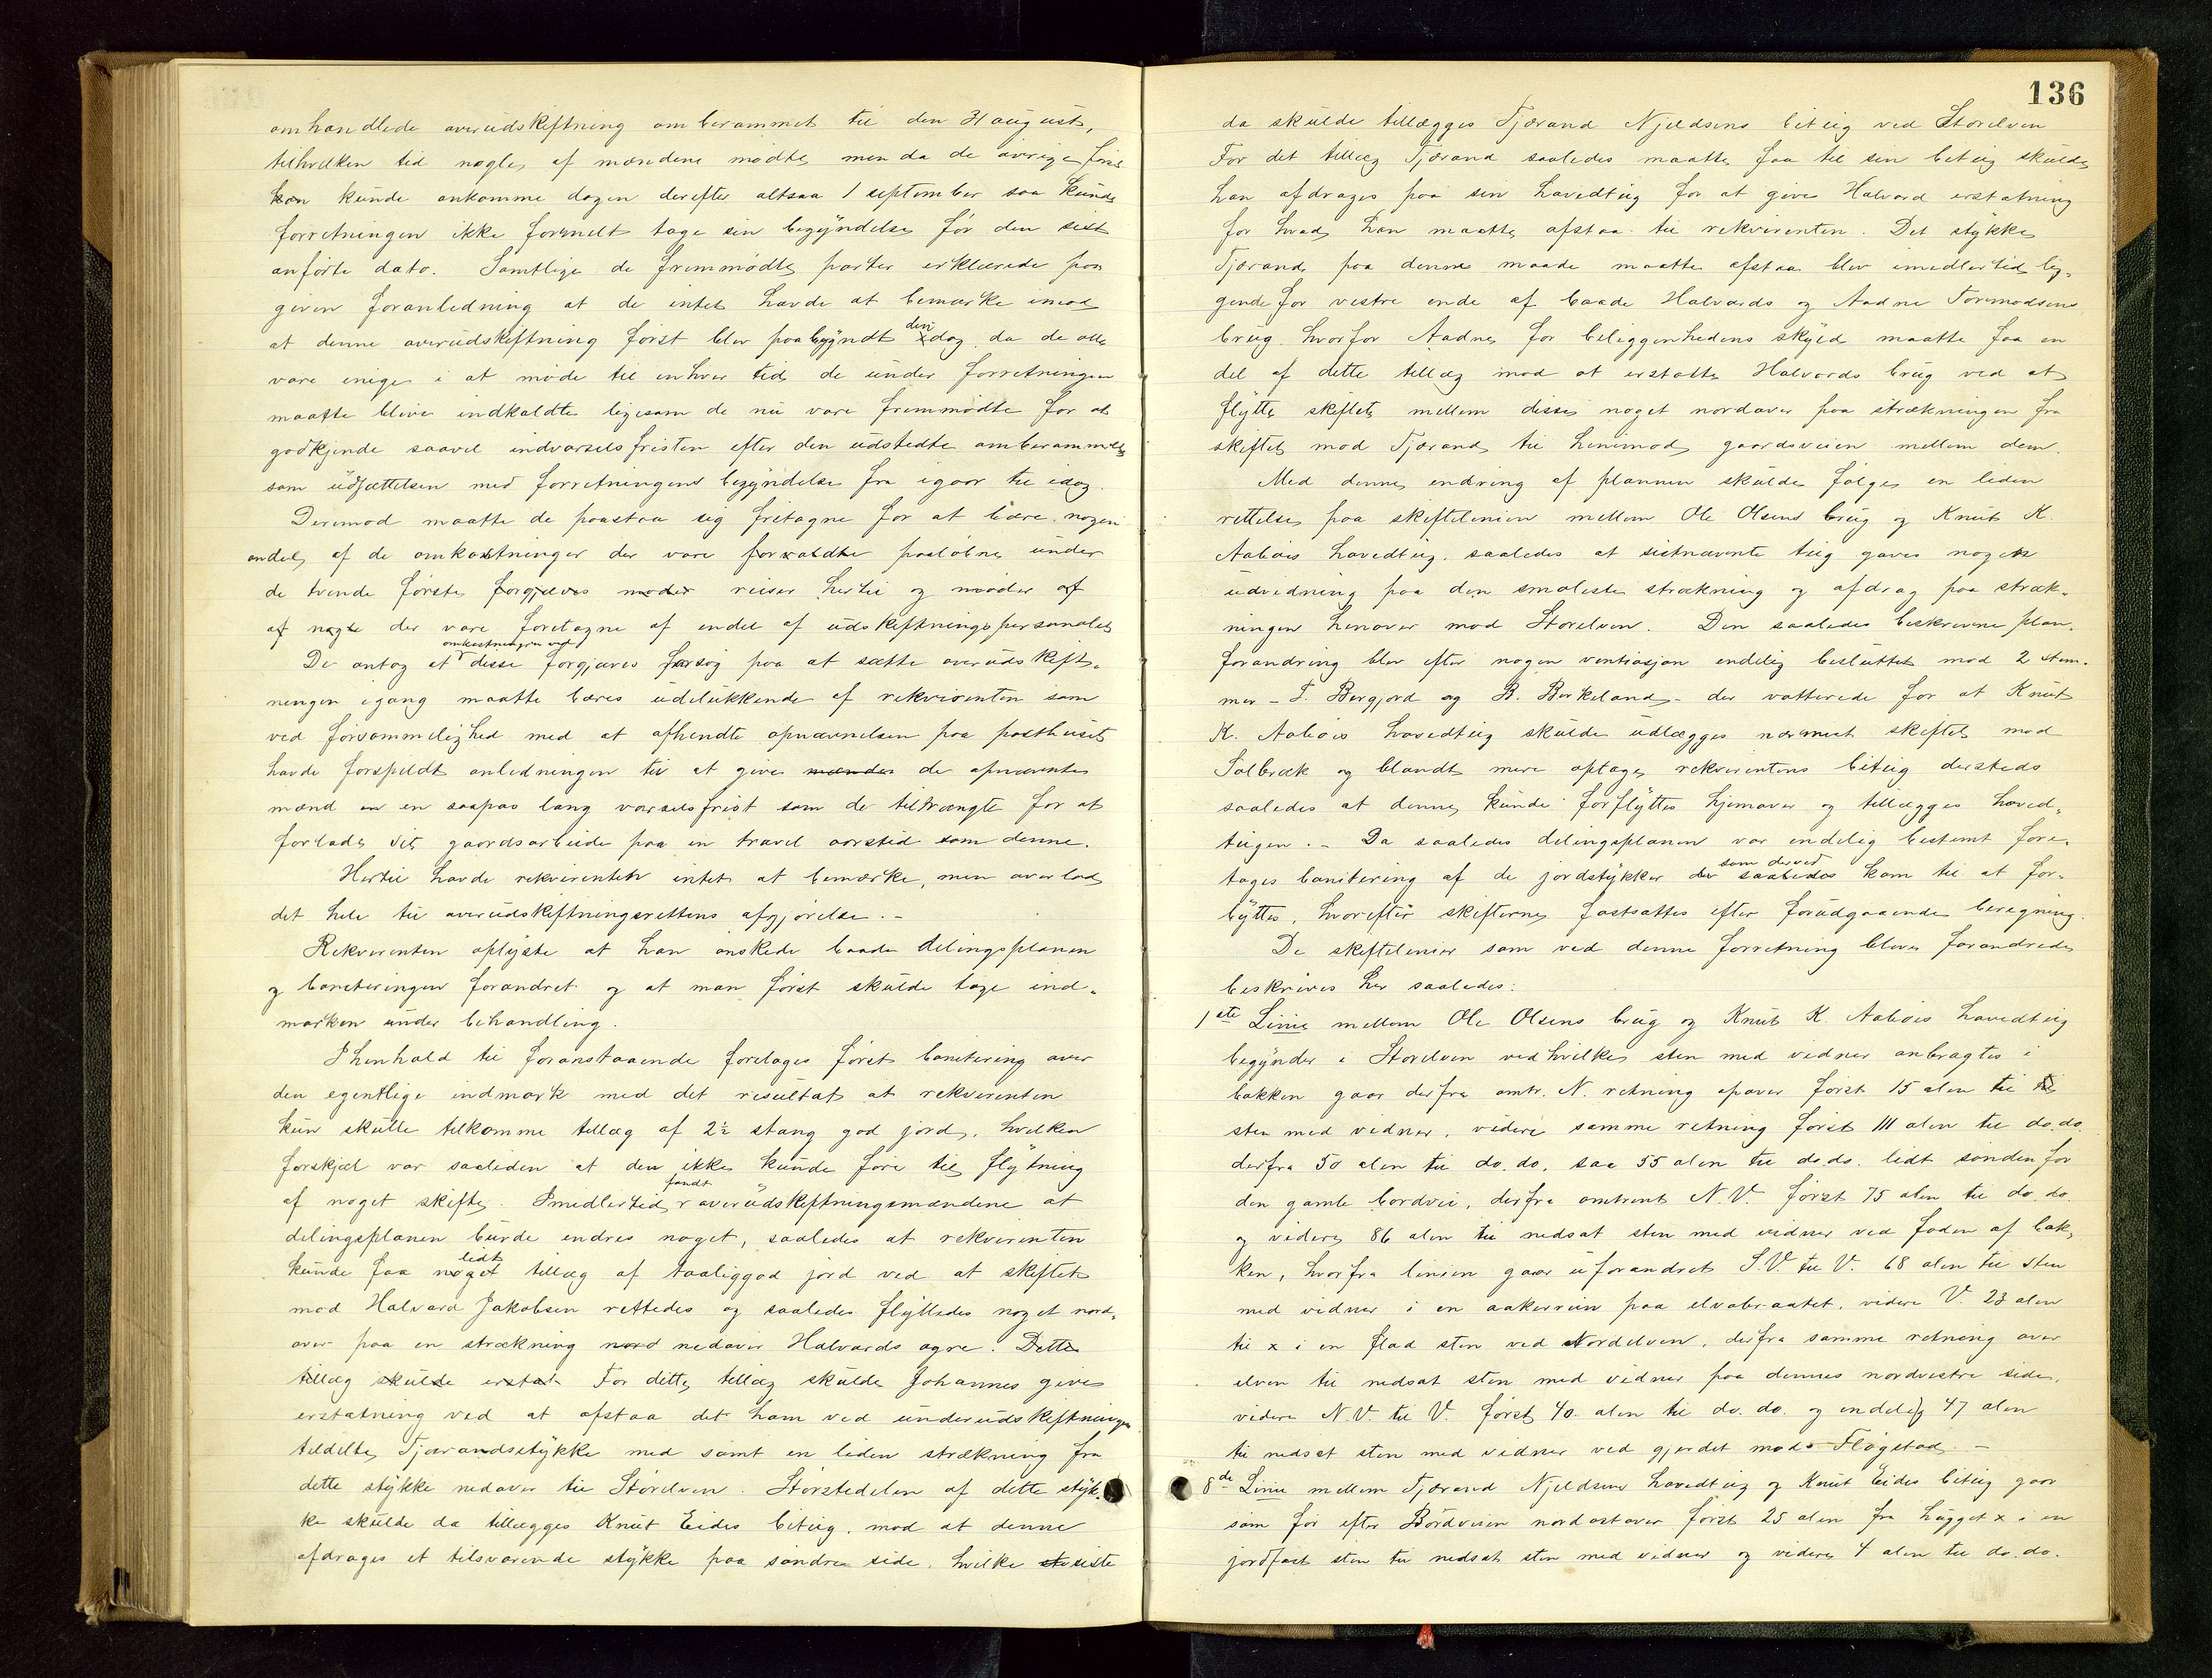 omhandlede overudskiftning omberammet til den 31 august,
tilhvilken tid nogle af mændene mødte, men da de øvrige først
kun kunde ankomme dagen derefter altsaa 1 september saa kunde
forretningen ikke formelt tage sin begyndelse før den sist
anførte dato. Samtlige de fremmødte parter erklærede paa
given foranledning at de intet havde at bemærke imod
at denne overudskiftning først blev paabegyndt den dag da de alle
vare enige i at møde til enhver tid de under forretningen
maatte blive indkaldte ligesom de nu vare fremmødte for at
godkjende saavel indvarselsfristen efter den udstedte omberammelse
som udsættelsen med forretningens begyndelse fra igaar til idag.
Derimod maatte de paastaa sig fritagne for at bære nogen
andel af de omkostninger der vare forvoldte paaløbne under
de tvende første forgjæves møder reiser hertil og møder af
af nogle der vare foretagne af endel af udskiftningspersonalet
De antog at omkostningerne ved disse forgjæves forsøg paa at sætte overudskift-
ningen igang maatte bæres udelukkende af rekvirenten som
ved forsømmelighed med at afhendte opnævnelsen paa posthuset
havde forspildt anledningen til at give mænder de opnævnte
mænd en saapas lang varselsfrist som de tiltrængte for at
forlade sit gaardsarbeide paa en travel aarstid som denne.
Hertil havde rekvirenten intet at bemærke, men overlod
det hele til overudskiftningsrettens afgjørelse.-
Rekvirenten oplyste at han ønskede baade delingsplanen
og boniteringen forandret og at man først skulde tage ind-
marken under behandling.
I henhold til foranstaaende foretages først bonitering over
den egentlige indmark med det resultat at rekvirenten
kun skulle tilkomme tillæg af 2½ stang god jord, hvilken
forskjel var saaliden at den ikke kunde føre til flytning
af noget skifte. Imedlertid fandt overudskiftningsmændene at
delingsplanen burde endres noget, saaledes at rekvirenten
kunde faa noget lidt tillæg af taaliggod jord ved at skiftet
mod Halvard Jakobsen rettedes og saaledes flyttedes noget nord-
over paa en strækning nord nedover Halvards agre. Dette
tillæg skulde erstat For dette tillæg skulde Johannes give
erstatning ved at afstaa det ham ved underudskiftningen
tildelte Tjærandsstykke med samt en liden strækning fra
dette stykke nedover til Storelven. Størstedelen af dette styk-
ke skulde da tillægges Knut Eides biteig, mod at denne
afdrages et tilsvarende stykke paa søndre side, hvilke sidste
136
da skulde tillægges Tjærand Njeldsens biteig ved Storelven
For det tillæg Tjærand saaledes maatte faa til sin biteig skulde
han afdrages paa sin hovedteig for at give Halvard erstatning
for hvad han maatte afstaa til rekvirenten. Det stykke
Tjærand paa denne maade maatte afstaa blev imedlertid lig-
gende for vestre ende af baade Halvards og Aadne Tormodsens
brug, hvorfor Aadne for beliggenhedens skyld maatte faa en
del af dette tillæg mod at erstatte Halvards brug ved at
flytte skiftet mellem disse noget nordover paa strækningen fra
skiftet mod Tjærand til henimod gaardsveien mellem dem.
Med denne endring af planen skulde følge en liden
rettelse paa skiftelinien mellem Ole Olsens brug og Knut K.
Aabøes hovedteig, saaledes at sistnævnte teig gaves nogen
udvidning paa den smaleste strækning og afdrag paa stræk-
ningen henover mod Storelven. Den saaledes beskrevne plan-
forandring blev efter nogen ventiasjon endelig besluttet mod 2 stem-
mer - T. Bergjord og B. Berkeland - der votterede for at Knut
K. Aabøes hovedteig skulde udlægges nærmest skiftet mod
Solbræk og blandt mere optage rekvirentens biteig dersteds
saaledes at denne kunde forflyttes hjemover og tillægges hoved-
teigen. - Da saaledes delingsplanen var endelig bestemt fore-
tages bonitering af de jordstykker der saaledes som derved kom til at for-
byttes, hvorefter skifterne fastsattes efter forudgaaende beregning.
De skiftelinier som ved denne forretning bleve forandrede
beskrives her saaledes:
1ste Linie mellem Ole Olsens brug og Knut K. Aabøes hovedteig
begynder i Storelven ved hvilken sten med vidner anbragtes i
bakken gaar derfra omtr. N. retning opover først 15 alen til
sten med vidner, videre samme retning først 111 alen til do. do.
derfra 50 alen til do. do. saa 55 alen til do. do. lidt søndenfor
den gamle bordvei, derfra omtrent N.V. først 75 alen til do. do.
og videre 86 alen til nedsat sten med vidner ved foden af bak-
ken, hvorfra linien gaar uforandret S.V. til V. 68 alen til sten
med vidner i en aakerrein paa elvabraatet, videre V. 23 alen
til x i en flad sten ved Nordelven, derfra samme retning over
elven til nedsat sten med vidner paa dennes nordvestre side,
videre N.V. til V. først 40 alen til do. do. og endelig 47 alen
til nedsat sten med vidner ved gjerdet mod Fløgstad. -
8de Linie mellem Tjærand Njeldsens hovedteig og Knut Eides biteig gaar
som før efter Bordveien nordostover først 25 alen fra hugget x i en
jordfast sten til nedsat sten med vidner og videre 4 alen til do. do.